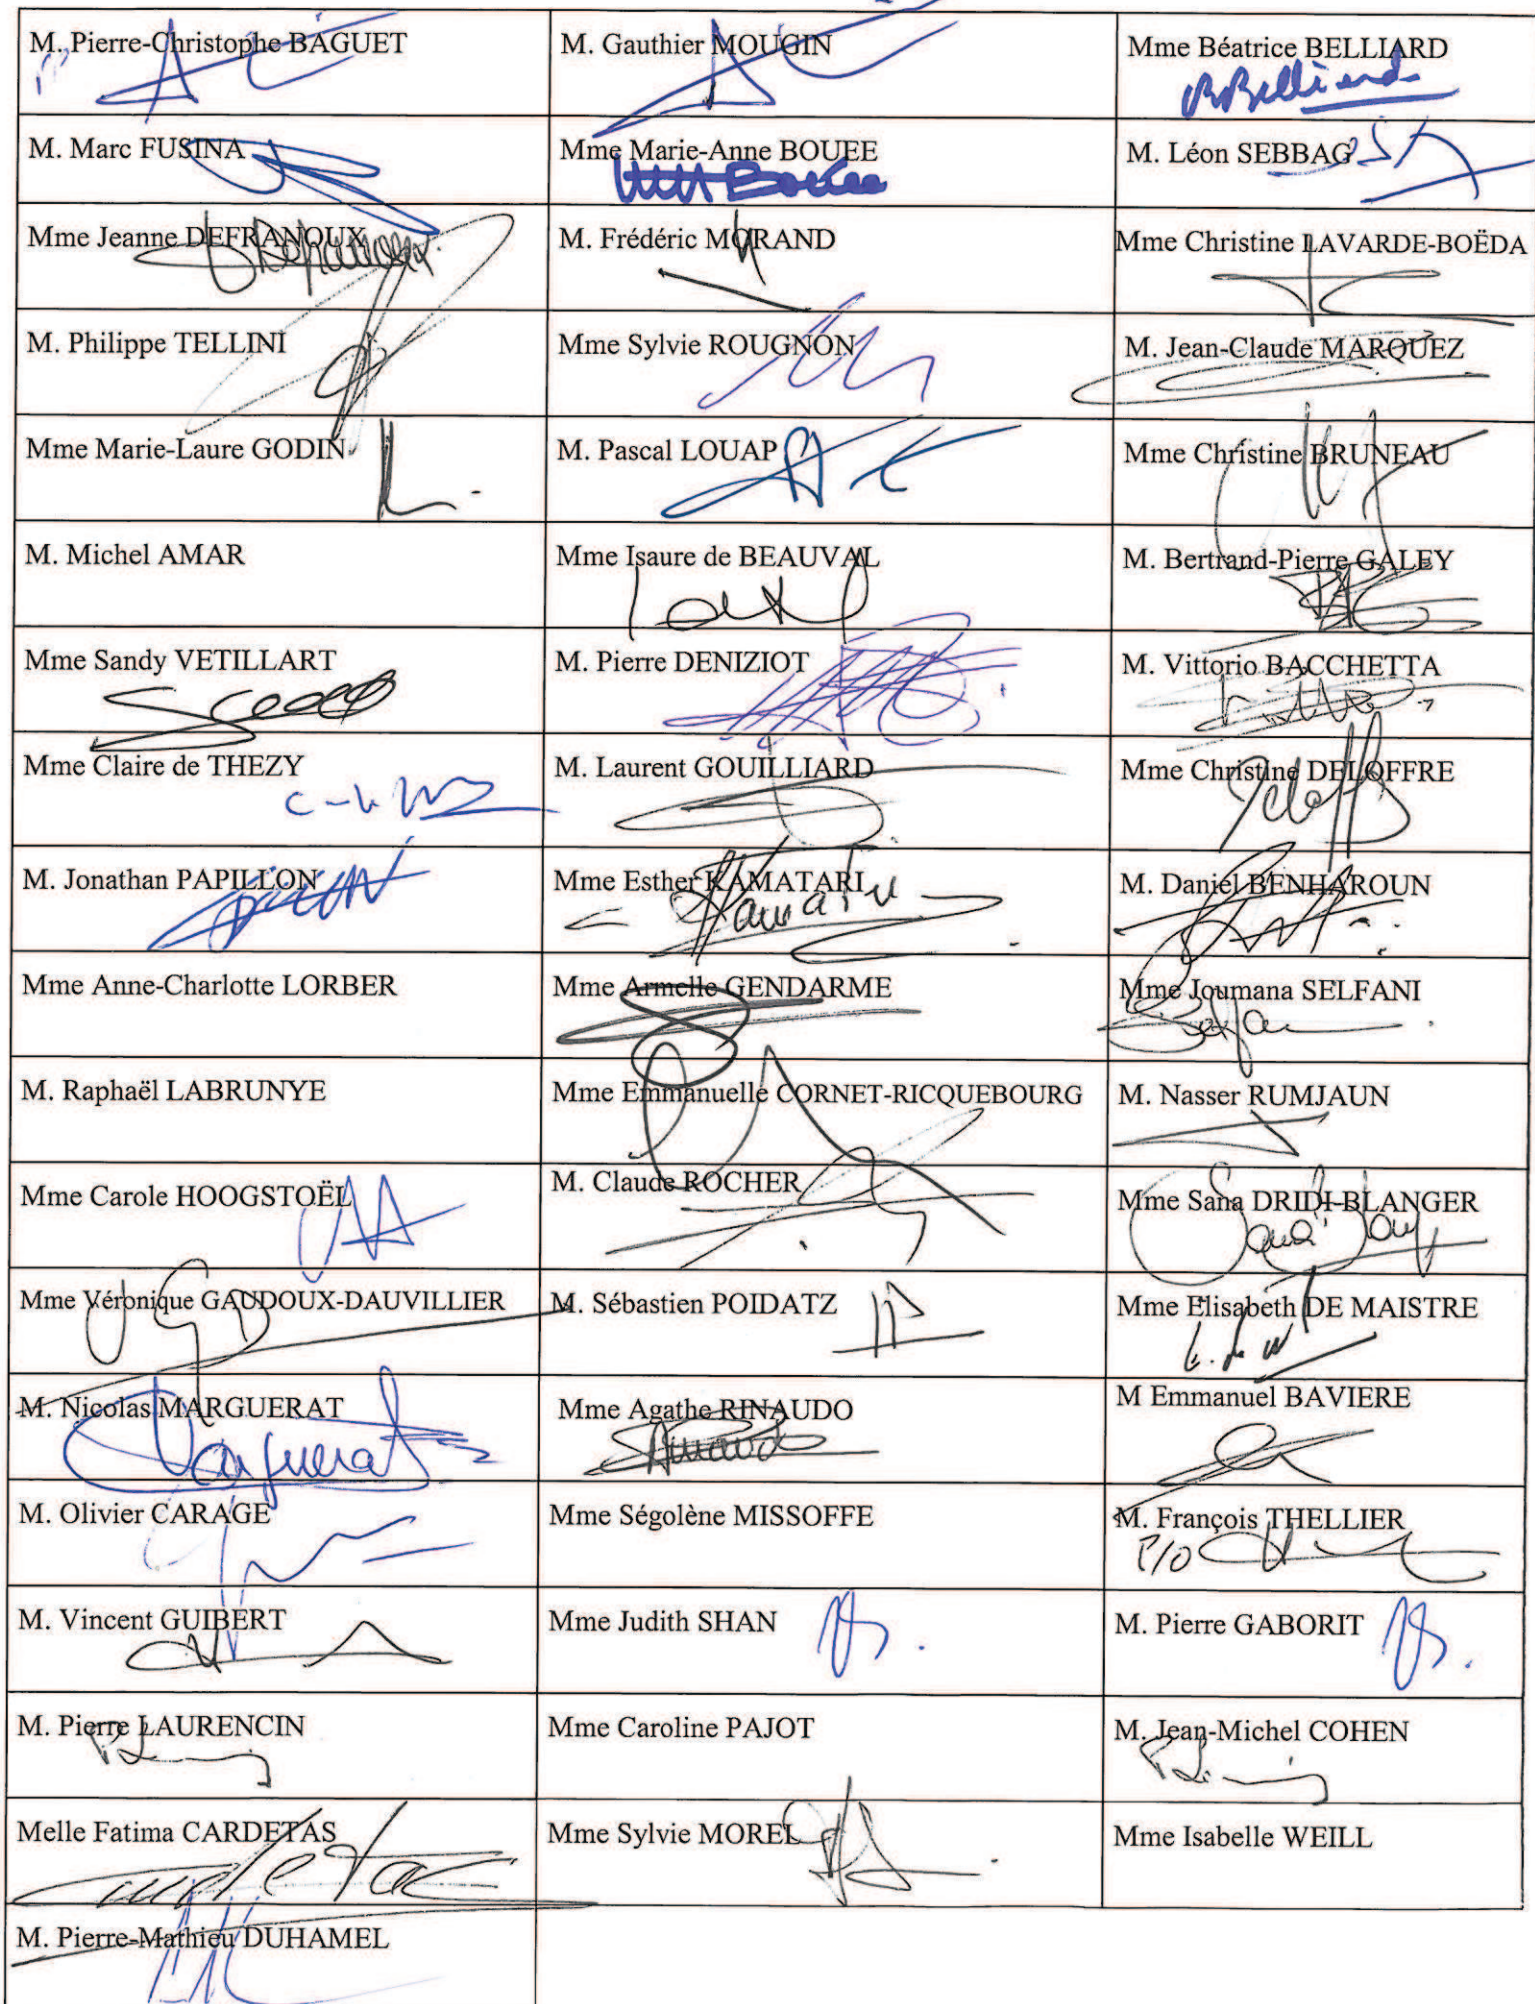 M. Pierre-Christophe BAGUET
M. Gauthier MOUGIN
Mme Béatrice BELLIARD
BBelliard
M. Marc FUSINA
Mme Marie-Anne BOUEE
MABouée
M. Léon SEBBAG
Mme Jeanne DEFRANOUX
JDefranoux
M. Frédéric MORAND
Mme Christine LAVARDE-BOËDA
M. Philippe TELLINI
Mme Sylvie ROUGNON
M. Jean-Claude MARQUEZ
Mme Marie-Laure GODIN
M. Pascal LOUAP
Mme Christine BRUNEAU
M. Michel AMAR
Mme Isaure de BEAUVAL
M. Bertrand-Pierre GALEY
Mme Sandy VETILLART
M. Pierre DENIZIOT
M. Vittorio BACCHETTA
Mme Claire de THEZY
M. Laurent GOUILLIARD
Mme Christine DELOFFRE
M. Jonathan PAPILLON
Mme Esther KAMATARI
Kamatari
M. Daniel BENHAROUN
Mme Anne-Charlotte LORBER
Mme Armelle GENDARME
Mme Joumana SELFANI
M. Raphaël LABRUNYE
Mme Emmanuelle CORNET-RICQUEBOURG
M. Nasser RUMJAUN
Mme Carole HOOGSTOËL
M. Claude ROCHER
Mme Sana DRIDI-BLANGER
Mme Véronique GAUDOUX-DAUVILLIER
M. Sébastien POIDATZ
Mme Elisabeth DE MAISTRE
M. Nicolas MARGUERAT
Marguerat
Mme Agathe RINAUDO
ARinaudo
M Emmanuel BAVIERE
M. Olivier CARAGE
Mme Ségolène MISSOFFE
M. François THELLIER
P/O
M. Vincent GUIBERT
Mme Judith SHAN
M. Pierre GABORIT
M. Pierre LAURENCIN
Mme Caroline PAJOT
M. Jean-Michel COHEN
Melle Fatima CARDETAS
Cardetas
Mme Sylvie MOREL
Mme Isabelle WEILL
M. Pierre-Mathieu DUHAMEL